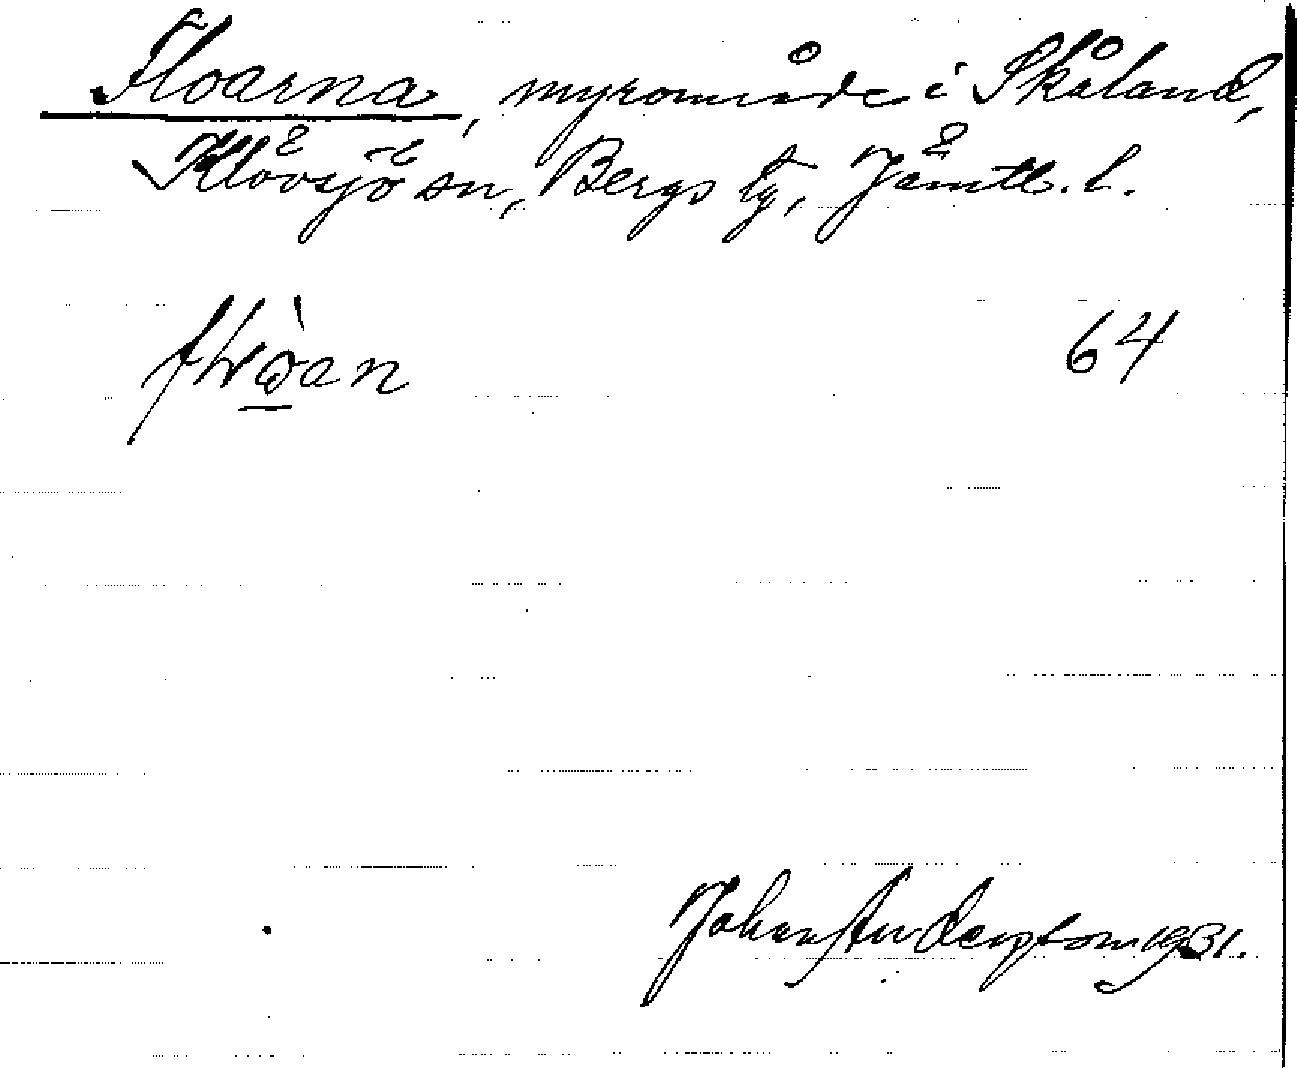 Floarna, myrområde i Skåland,
Klövsjö sn, Bergs tg, Jämtl. l.
64
Johan Anderson 1931.